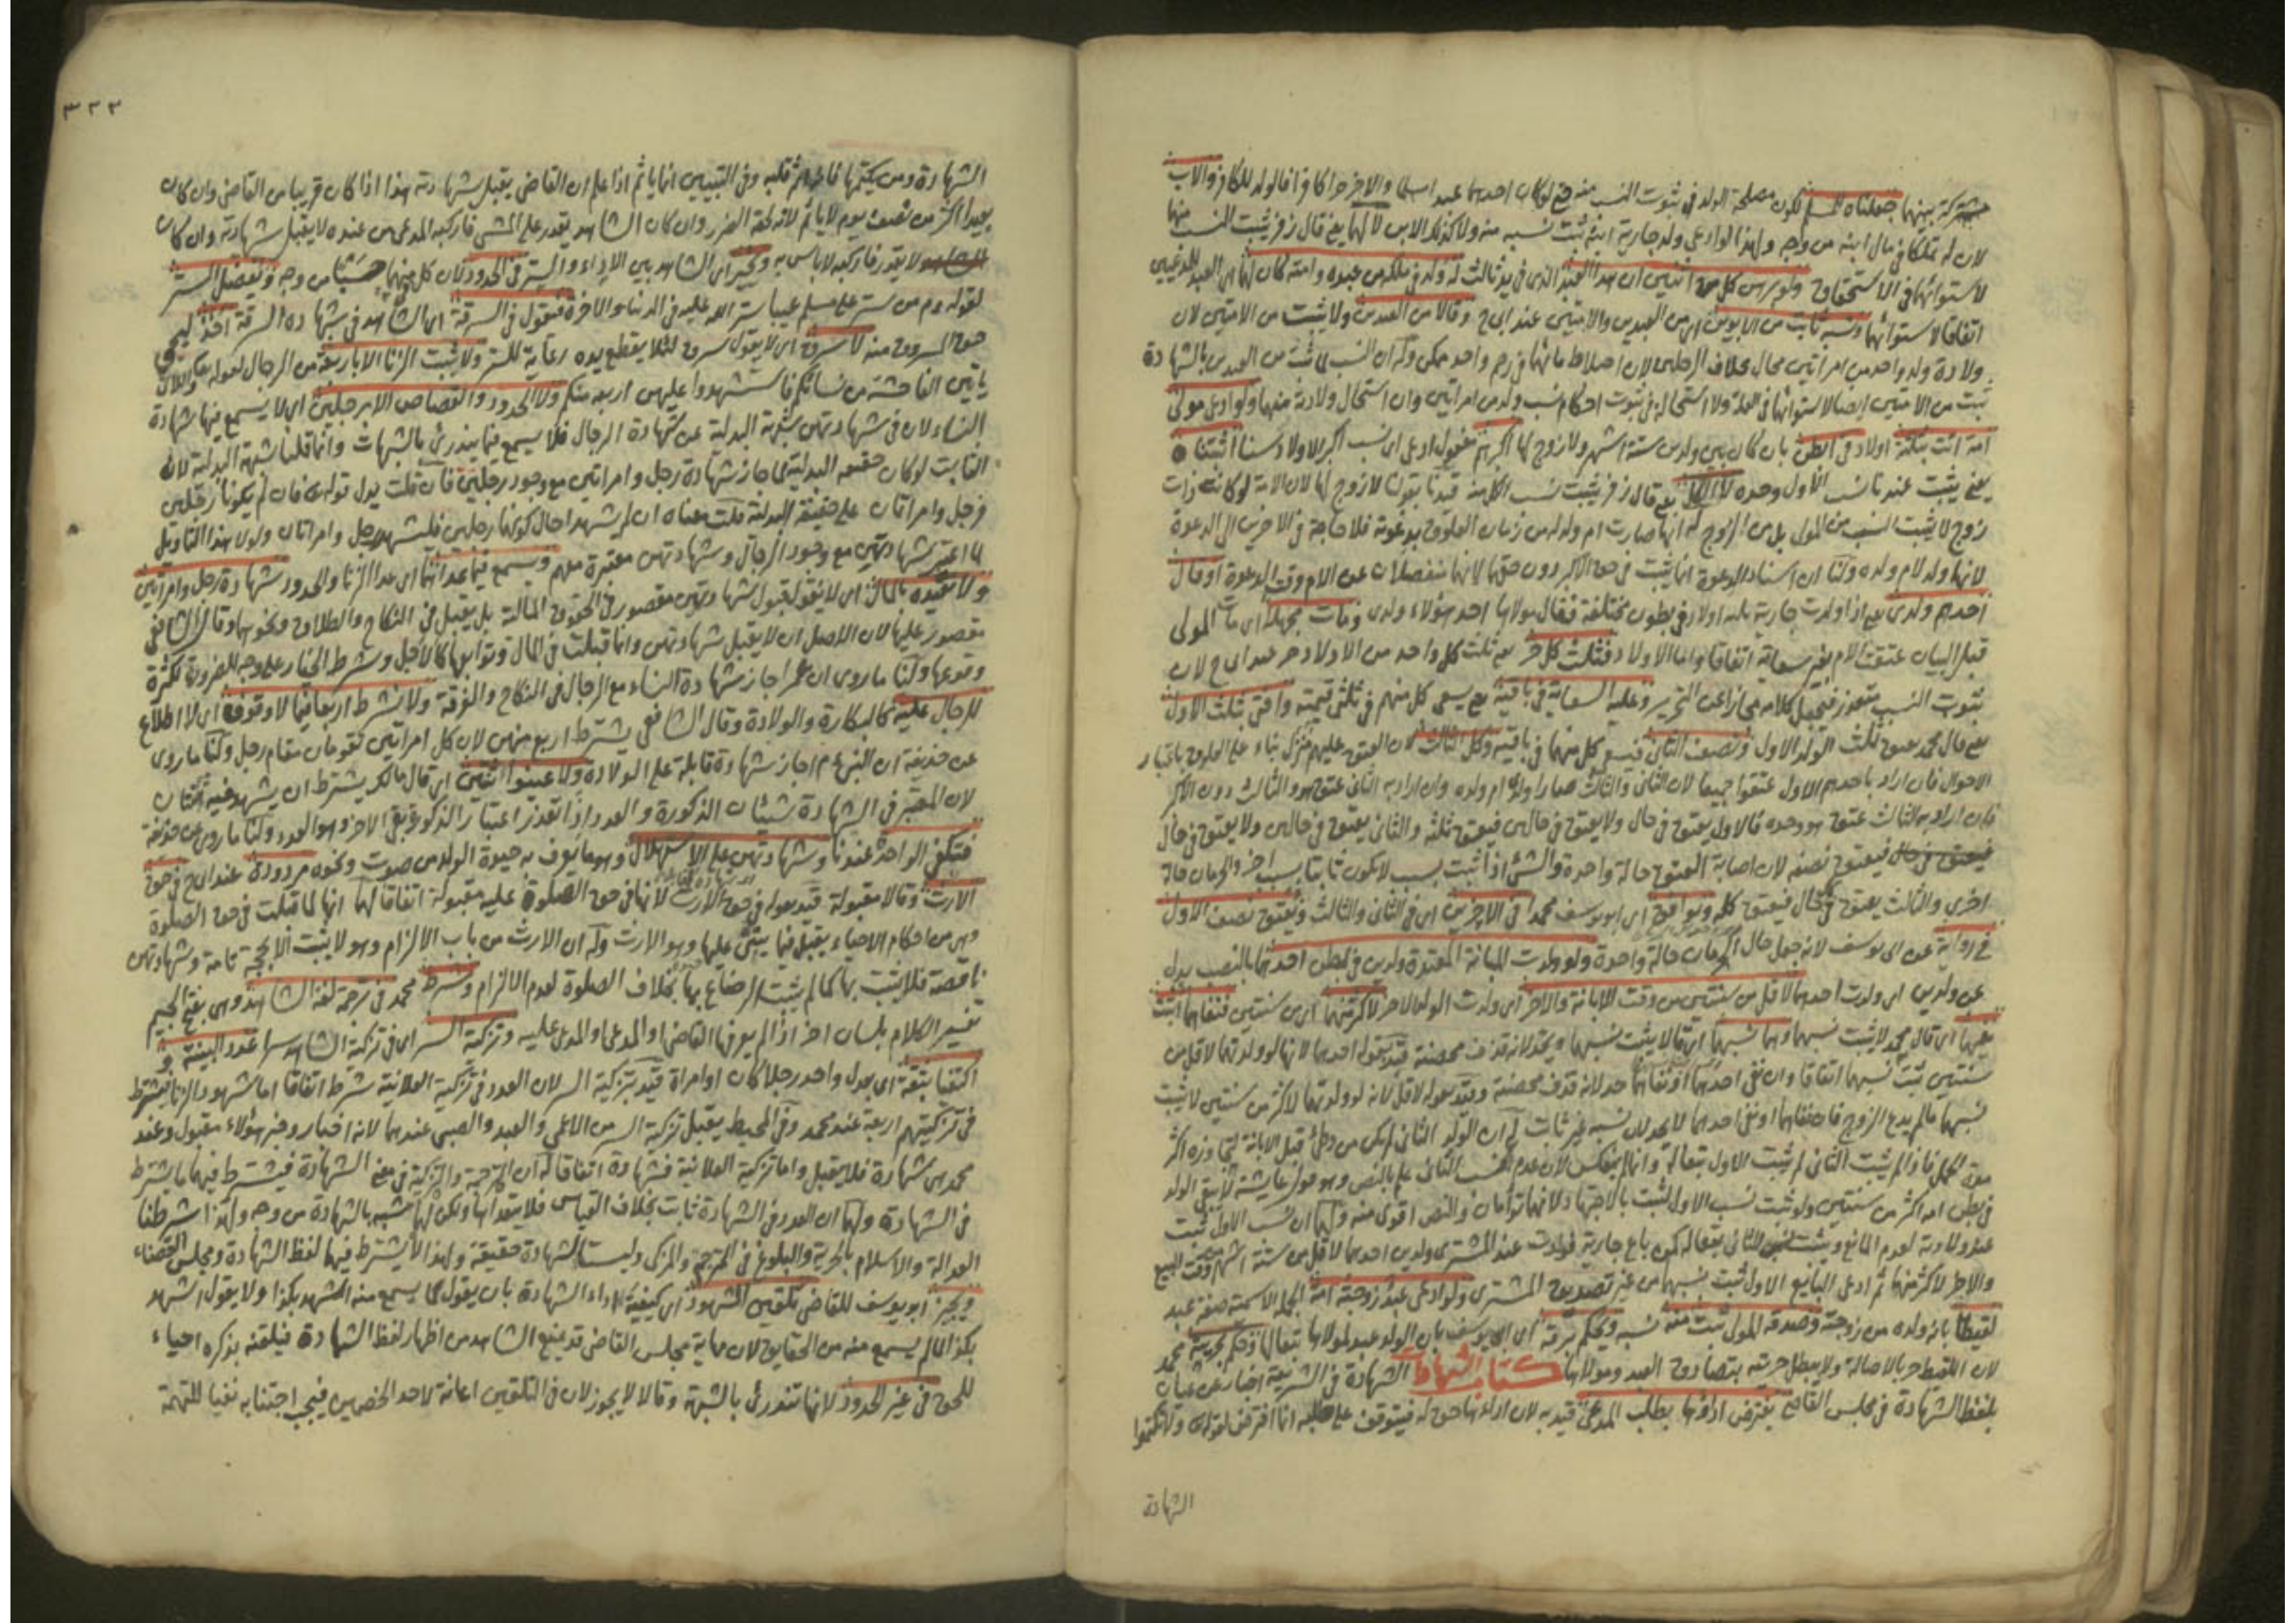 مشتركة بينهما فجعلناه للمسلم لكون مصلحة الولد في ثبوت النسب منه حتى لو كان احدهما عبدا مسلما والاخر حرا كافرا فالولد للكافر والاب
لان له تملكا في مال ابنه من وجه ولهذا لو ادعى ولد جارية ابنه ثبت نسبه منه ولا كذلك الابن لا لهما يعني قال زفر يثبت النسب منهما
لاستوائهما في الاستحقاق
اتفاقا لاستوائهما ونسبه ثابت من الابوين اي من العبدين والامتين عند ابي ح وقالا من العبدين ولا يثبت من الامتين لان
ولادة ولد واحد من امراتين محال بخلاف الرجلين لان اختلاط مائهما في رحم واحد ممكن وله ان النسب لما ثبت من العبدين بالشهادة
ثبت من الامتين ايضا لاستوائهما في العلة ولا استحالة في ثبوت احكام نسب ولد من امراتين وان استحال ولادته منهما ولو ادعى مولى
امة اتت بثلثة اولاد في ابطن بان كان بين ولدين ستة اشهر ولا زوج لها اكبرهم مفعول ادعى اي نسب اكبر الاولاد سنا اثبتناه
يعني يثبت عندنا نسب الاول وحده لا الكل يعني قال زفر يثبت نسب الكل منه قيدنا بقولنا لا زوج لها لان الامة لو كانت ذات
زوج لا يثبت النسب من المولى بل من الزوج له انها صارت ام ولد له من زمان العلوق بدعوته فلا حاجة في الاخرين الى الدعوة
لانهما ولد لام ولده ولنا ان اسناد الدعوة انما يثبت في حق الاكبر دون حقهما لانهما منفصلان عن الام وقت الدعوة او قال
احدهم ولدي يعني اذا ولدت جارية ثلثة اولاد في بطون مختلفة فقال مولاها احد هؤلاء ولدي ومات مجهلا اي مات المولى
قبل البيان عتقت الام بغير سعاية اتفاقا واما الاولاد فثلث كل حر يعني ثلث كل واحد من الاولاد حر عند ابي ح لان
ثبوت النسب متعذر فيجعل كلامه مجازا عن التحرير وعليه السعاية في باقيه يعني يسعى كل منهم في ثلثي قيمته وافتى بثلث الاول
يعني قال محمد عتق ثلث الولد الاول ونصف الثاني فيسعى كل منهما في باقيه وكل الثالث لان العتق عليهم بناء على العلوق باعتبار
الاحوال فان اراد باحدهم الاول عتقوا جميعا لان الثاني والثالث صارا ولدي ام ولده وان اراد به الثاني عتق هو والثالث دون الاكبر
وان اراد به الثالث عتق هو وحده فالاول يعتق في حال ولا يعتق في حالين فيعتق ثلثه والثاني يعتق في حالين ولا يعتق في حال
فيعتق نصفه لان اصابة العتق حالة واحدة والشئ اذا ثبت بسبب لا يكون ثابتا بسبب اخر والحرمان حالة
اخرى والثالث يعتق في كل حال فيعتق كله ويوافق اي ابو يوسف محمدا في الاخرين اي في الثاني والثالث ويعتق نصف الاول
في رواية عن ابي يوسف لانه جعل حال الحرمان حالة واحدة ولو ولدت المبانة المعتدة ولدين في بطن احدهما بالنصب بدل
عن ولدين اي ولدت احدهما لاقل من سنتين من وقت الابانة والاخر اي ولدت الولد الاخر لاكثر منهما اي من سنتين فنفاهما اثبت
نسبهما اي قال محمد لا يثبت نسبهما وهما نسبهما
سنتين ثبت نسبهما اتفاقا وان نفى احدهما او نفاهما حد لانه قذف محصنة وقيد بقوله لاقل لانه لو ولدتهما لاكثر من سنتين لا يثبت
نسبهما ما لم يدع الزوج
في بطن امه اكثر من سنتين ولو ثبت نسب الاول لثبت بالاجتهاد لانهما توأمان والنص اقوى منه ولهما ان نسب الاول ثبت
عند ولادته لعدم المانع
والاخر لاكثر منها ثم ادعى البايع الاول ثبت نسبهما من غير تصديق المشتري ولو ادعى عبد زوجته امة
لقيطا بانه ولده من زوجته وصدقه المولى ثبت منه نسبه ويحكم برقه اي ابو يوسف بان الولد عبد لمولاها تبعا لها وحكم بحريته محمد
لان اللقيط حر بالاصالة ولا يبطل حريته بتصادق العبد ومولاها كتاب الشهادات الشهادة في الشريعة اخبار عن عيان
بلفظ الشهادة في مجلس القاضي يفترض اداؤها بطلب المدعي قيد به لان اداءها حق له فيتوقف على طلبه انما افترض لقوله تع ولا تكتموا
الشهادة
٣٢٢
الشهادة ومن يكتمها فانه اثم قلبه وفي التبيين انما ياثم اذا علم ان القاضي يقبل شهادته هذا اذا كان قريبا من القاضي وان كان
بعيدا اكثر من نصف يوم لا ياثم لانه لحقه الضرر وان كان الشاهد يقدر على المشي فاركبه المدعي من عنده لا يقبل شهادته وان كان
لا يقدر فاركبه لا باس به ويخير اي الشاهد بين الاداء والستر في الحدود لان كل منهما حسن من وجه ونفضل الستر
لقوله عم من ستر على مسلم عيبا ستر الله عليه في الدنيا والاخرة فيقول في السرقة اي الشاهد في شهادة السرقة اخذ ليحيى
حق المسروق منه لا سرق اي لا يقول سرق لئلا يقطع يده رعاية للستر ولا يثبت الزنا الا باربعة من الرجال لقوله تع واللاتي
ياتين الفاحشة من نسائكم فاستشهدوا عليهن اربعة منكم ولا الحدود والقصاص الا برجلين اي لا يسمع فيها شهادة
النساء لان في شهادتهن شبهة البدلية عن شهادة الرجال فلا يسمع فيما يندرئ بالشبهات وانما قلنا شبهة البدلية لان
الثابت لو كان حقيقة البدلية لما جاز شهادة رجل وامراتين مع وجود رجلين فان قلت يدل قوله تع فان لم يكونا رجلين
فرجل وامراتان على حقيقة البدلية قلت معناه ان لم يشهدا حال كونهما رجلين فليشهد رجل وامراتان ولولا هذا التاويل
لما اعتبر شهادتهن مع وجود الرجال وشهادتهن معتبرة معهم ويسمع فيما عداهما اي عدا الزنا والحدود شهادة رجل وامراتين
ولا نقيده بالمال اي لا نقول قبول شهادتهن مقصور في الحقوق المالية بل يقبل في النكاح والطلاق ونحوهما وقال الشافعي
مقصور عليها لان الاصل ان لا يقبل شهادتهن وانما قبلت في المال وتوابعها كالاجل وشرط الخيار على وجه الضرورة لكثرة
وقوعها ولنا ما روى ان عمر اجاز شهادة النساء مع الرجال في النكاح والفرقة ولا نشرط اربعا فيما لا وقوف اي لا اطلاع
للرجال عليه كالبكارة والولادة وقال الشافعي يشترط اربع منهن لان كل امراتين تقومان مقام رجل ولنا ما روى
عن حذيفة ان النبي عم اجاز شهادة قابلة على الولادة ولا عينوا اثنتين اي قال مالك يشترط ان يشهد فيه ثنتان
لان المعتبر في الشهادة شيئان الذكورة والعدد اذا تعذر اعتبار الذكورة بقي الاخر وهو العدد ولنا ما روى عن حذيفة
فتكفي الواحدة عندنا وشهادتهن على الاستهلال وهو ما يعرف به حيوة الولد من صوت ونحوه مردودة عند ابي ح في حق
الارث وقالا مقبولة قيد بقوله في حق الارث لانها في حق الصلوة عليه مقبولة اتفاقا لهما انها لما قبلت في حق الصلوة
وهي من احكام الاحياء يقبل فيما يبتنى عليها وهو الارث وله ان الارث من باب الالزام وهو لا يثبت الا بحجة تامة وشهادتهن
ناقصة فلا يثبت بها كما لم يثبت الرضاع بها بخلاف الصلوة لعدم الالزام وشرط محمد في ترجمة لغة الشاهد وهي بفتح الجيم
تفسير الكلام بلسان اخر اذا لم يعرفها القاضي او المدعي او المدعى عليه وتزكية السر اي في تزكية الشاهد سرا عدد البينة و
اكتفيا بثقة اي بعدل واحد رجلا كان او امراة قيد بتزكية السر لان العدد في تزكية العلانية شرط اتفاقا اما شهود الزنا يشترط
في تزكيتهم اربعة عند محمد وفي المحيط يقبل تزكية السر من الاعمى والعبد والصبي عندهما لانه اخبار وخبر هؤلاء مقبول وعند
محمد هي شهادة فلا يقبل واما تزكية العلانية فشهادة اتفاقا له ان الترجمة والتزكية في معنى الشهادة فيشترط فيهما ما يشترط
في الشهادة ولهما ان العدد في الشهادة ثابت بخلاف القياس فلا يتعداها ولكن لهما شبه بالشهادة من وجه ولهذا شرطنا
العدالة والاسلام والحرية والبلوغ في المترجم والمزكي وليستا شهادة حقيقة ولهذا لا يشترط فيهما لفظ الشهادة ومجلس القضاء
ويجيز ابو يوسف للقاضي تلقين الشهود اي كيفية اداء الشهادة بان يقول لما يسمع منه اتشهد بكذا ولا يقول اشهد
بكذا لما لم يسمع منه من الحقايق لان مهابة مجلس القاضي قد يمنع الشاهد من اظهار لفظ الشهادة فيلقنه بذكره احياء
للحق في غير الحدود لانها تندرئ بالشبهة وقالا لا يجوز لان في التلقين اعانة لاحد الخصمين فيجب اجتنابه نفيا للتهمة